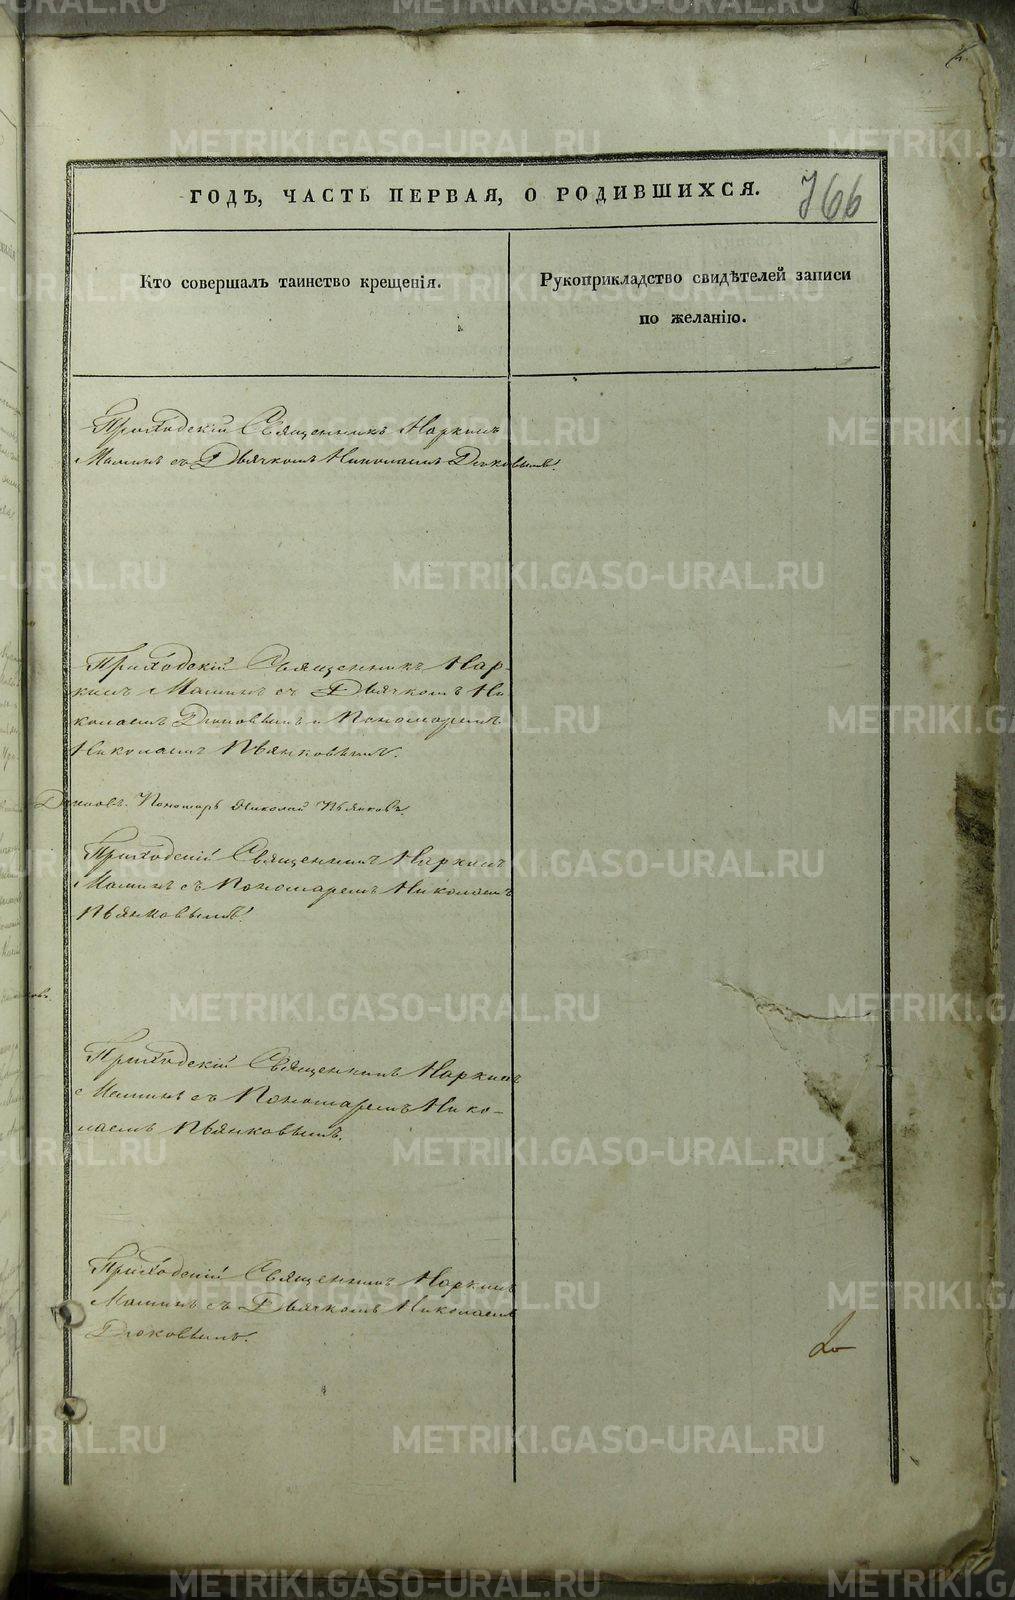 ГОДЪ, ЧАСТЬ ПЕРВАЯ, О РОДИВШИХСЯ.
766
Кто совершалъ таинство крещенія.
Рукоприкладство свидѣтелей записи
по желанію.
Приходскій Священникъ Наркисъ
Маминъ съ Дьячкомъ Николаемъ Дюковымъ.
Приходскій Священникъ Нар-
кисъ Маминъ съ Дьячкомъ Ни
колаемъ Дюковымъ и Пономаремъ
Николаемъ Пьянковымъ.
Пономарь Николай Пьянковъ.
Приходскій Священникъ Наркисъ
Маминъ съ Пономаремъ Николаемъ
Пьянковымъ.
Приходскій Священникъ Наркисъ
Маминъ съ Пономаремъ Нико-
лаемъ Пьянковымъ.
Приходскій Священникъ Наркисъ
Маминъ съ Дьячкомъ Николаемъ
Дюковымъ.
METRIKI.GASO-URAL.RU